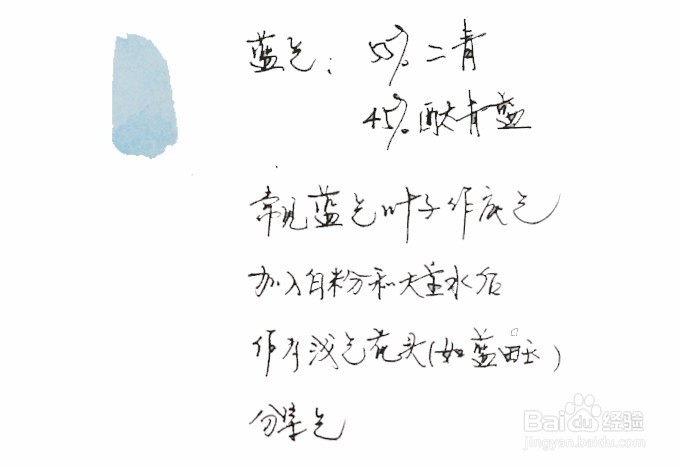 蓝色：55% 二青
45% 酞青蓝
常见蓝色叶子作底色
加入白粉和大量水后
作为浅色花头（如蓝田玉）
分染色
Baidu经验
jingyan.baidu.com